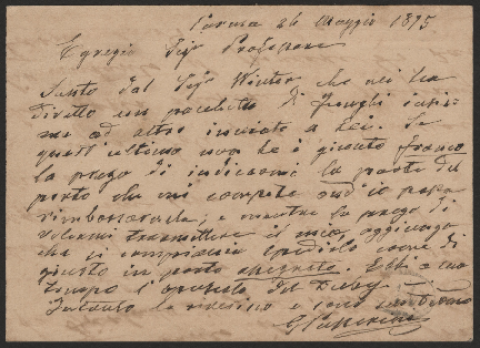 Parma 26 Maggio 1895
Egregio Sigr Professore
Sento dal Sigr Winter che mi ha
diretto un pacchetto di funghi insie-
me ad altro inviato a Lei. Se
quest'ultimo non le è giunto franco
la prego di indicarmi la parte del
porto che mi compete ond'io possa
rimborsarla; e mentre la prego di
volermi trasmettere il mio, aggiungo
che si compiaccia spedirlo come di
giusto in porto assegnato. Ebbi a suo
tempo l'opuscolo del Duby
Intanto la riverisco e sono
G Passerini